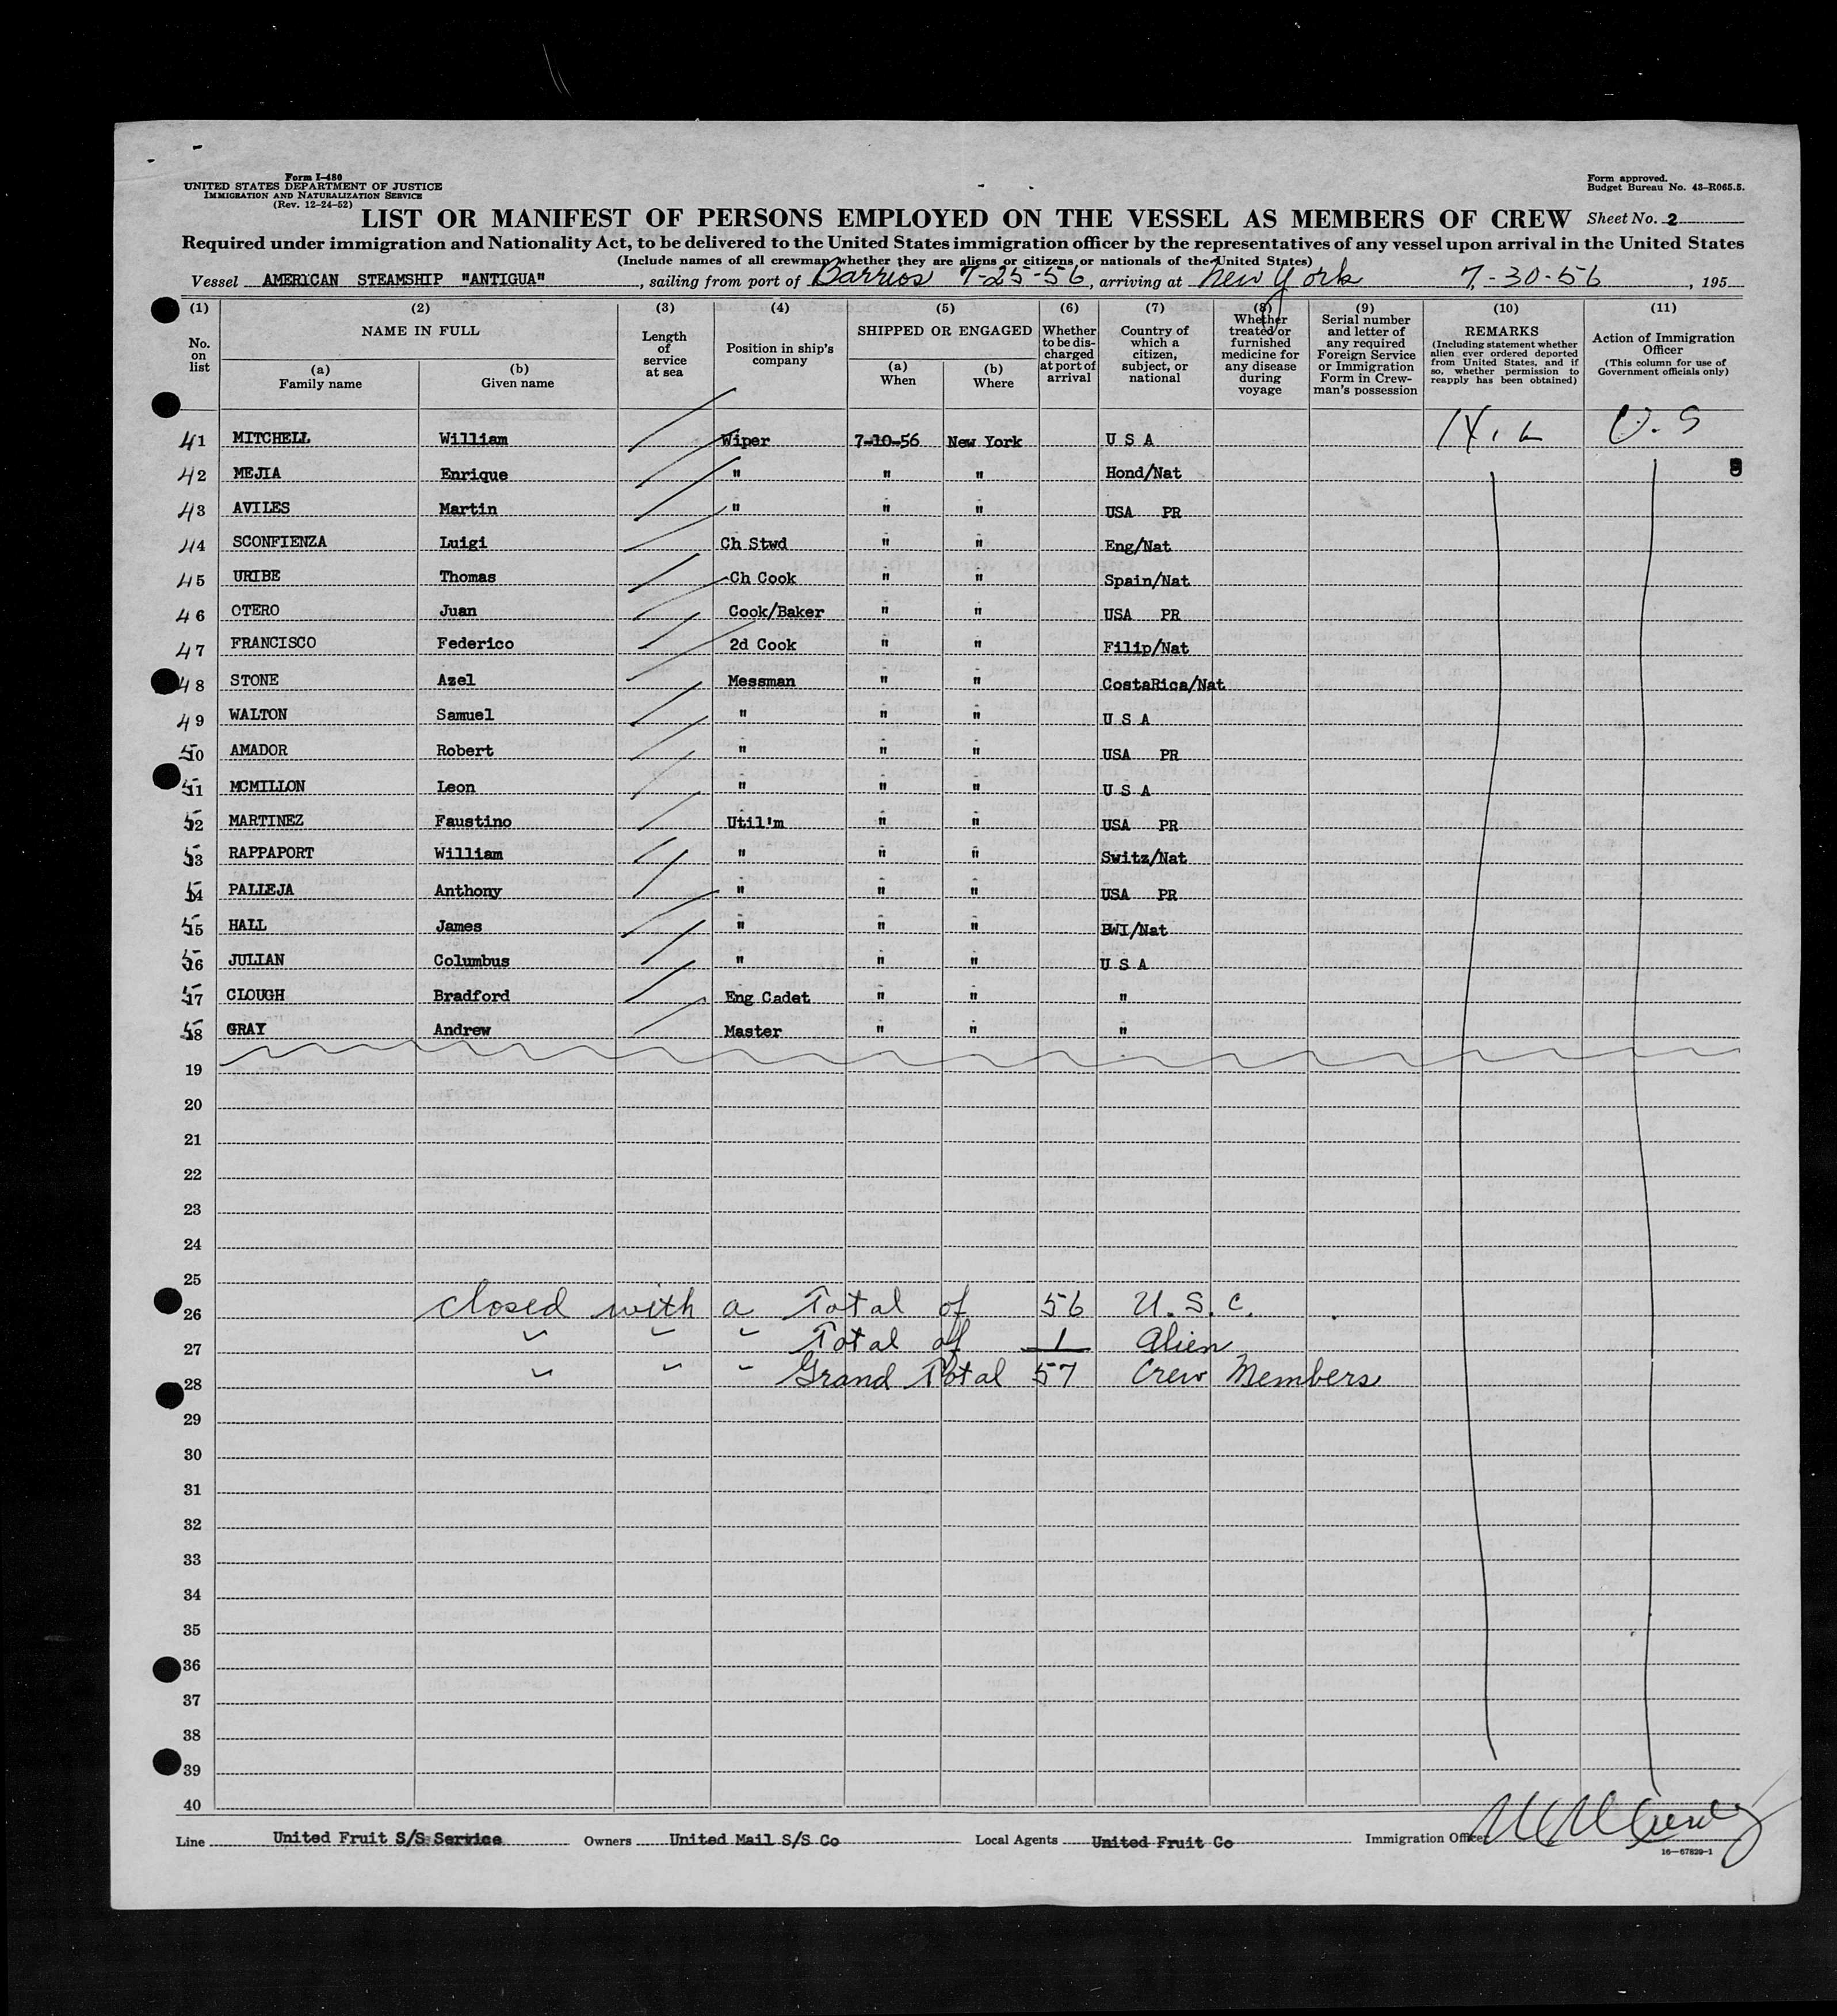 Form I-480
UNITED STATES DEPARTMENT OF JUSTICE
IMMIGRATION AND NATURALIZATION SERVICE
(Rev. 12-24-52)
Form approved.
Budget Bureau No. 43-R065.5.
LIST OR MANIFEST OF PERSONS EMPLOYED ON THE VESSEL AS MEMBERS OF CREW Sheet No. 2
Required under immigration and Nationality Act, to be delivered to the United States immigration officer by the representatives of any vessel upon arrival in the United States
(Include names of all crewman whether they are aliens or citizens or nationals of the United States)
Vessel AMERICAN STEAMSHIP "ANTIGUA", sailing from port of Barrios 7-25-56, arriving at New York 7-30-56, 195
(1) No. on list
(2) NAME IN FULL
(a) Family name
(b) Given name
(3) Length of service at sea
(4) Position in ship's company
(5) SHIPPED OR ENGAGED
(a) When
(b) Where
(6) Whether to be discharged at port of arrival
(7) Country of which a citizen, subject, or national
(8) Whether treated or furnished medicine for any disease during voyage
(9) Serial number and letter of any required Foreign Service or Immigration Form in Crewman's possession
(10) REMARKS
(Including statement whether alien ever ordered deported from United States, and if so, whether permission to reapply has been obtained)
(11) Action of Immigration Officer
(This column for use of Government officials only)
41 MITCHELL William Wiper 7-10-56 New York U S A U.S
42 MEJIA Enrique " " " Hond/Nat
43 AVILES Martin " " " USA PR
44 SCONFIENZA Luigi Ch Stwd " " Eng/Nat
45 URIBE Thomas Ch Cook " " Spain/Nat
46 OTERO Juan Cook/Baker " " USA PR
47 FRANCISCO Federico 2d Cook " " Filip/Nat
48 STONE Azel Messman " " CostaRica/Nat
49 WALTON Samuel " " " U S A
50 AMADOR Robert " " " USA PR
51 MCMILLON Leon " " " U S A
52 MARTINEZ Faustino Util'm " " USA PR
53 RAPPAPORT William " " " Switz/Nat
54 PALLEJA Anthony " " " USA PR
55 HALL James " " " BWI/Nat
56 JULIAN Columbus " " " U S A
57 CLOUGH Bradford Eng Cadet " " "
58 GRAY Andrew Master " " "
19
20
21
22
23
24
25
26 Closed with a Total of 56 U.S.C.
27 " " " Total of 1 Alien
28 " " " Grand Total 57 Crew Members
29
30
31
32
33
34
35
36
37
38
39
40
Line United Fruit S/S Service Owners United Mail S/S Co Local Agents United Fruit Co Immigration Officer
16-67829-1